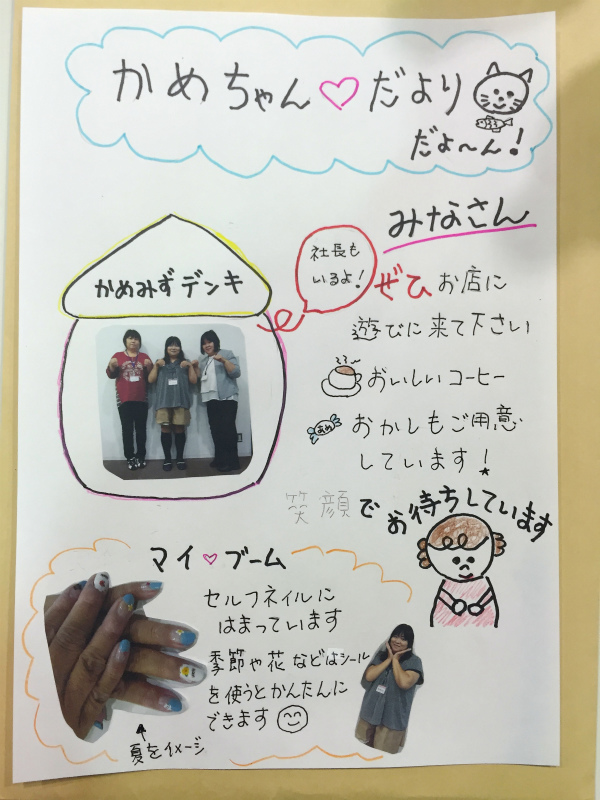 かめちゃん♡だより
だよ〜ん！
みなさん
社長も
いるよ！
かめみずデンキ
ぜひお店に
遊びに来て下さい
おいしいコーヒー
あめ
おかしもご用意
しています！
笑顔でお待ちしています
マイ♡ブーム
セルフネイルに
はまっています
季節や花などはシール
を使うとかんたんに
できます
夏をイメージ